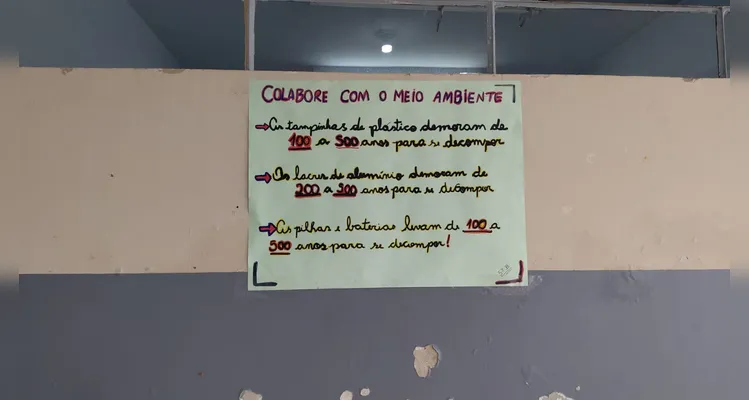 COLABORE COM O MEIO AMBIENTE
As tampinhas de plástico demoram de
100 a 500 anos para se decompor
Os lacres de alumínio demoram de
200 a 500 anos para se decompor
As pilhas e baterias levam de 100 a
500 anos para se decompor!